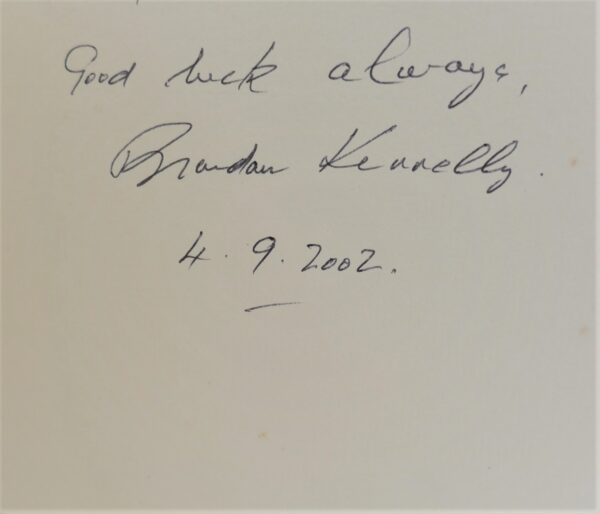 Good luck always,
Brendan Kennelly.
4.9.2002.